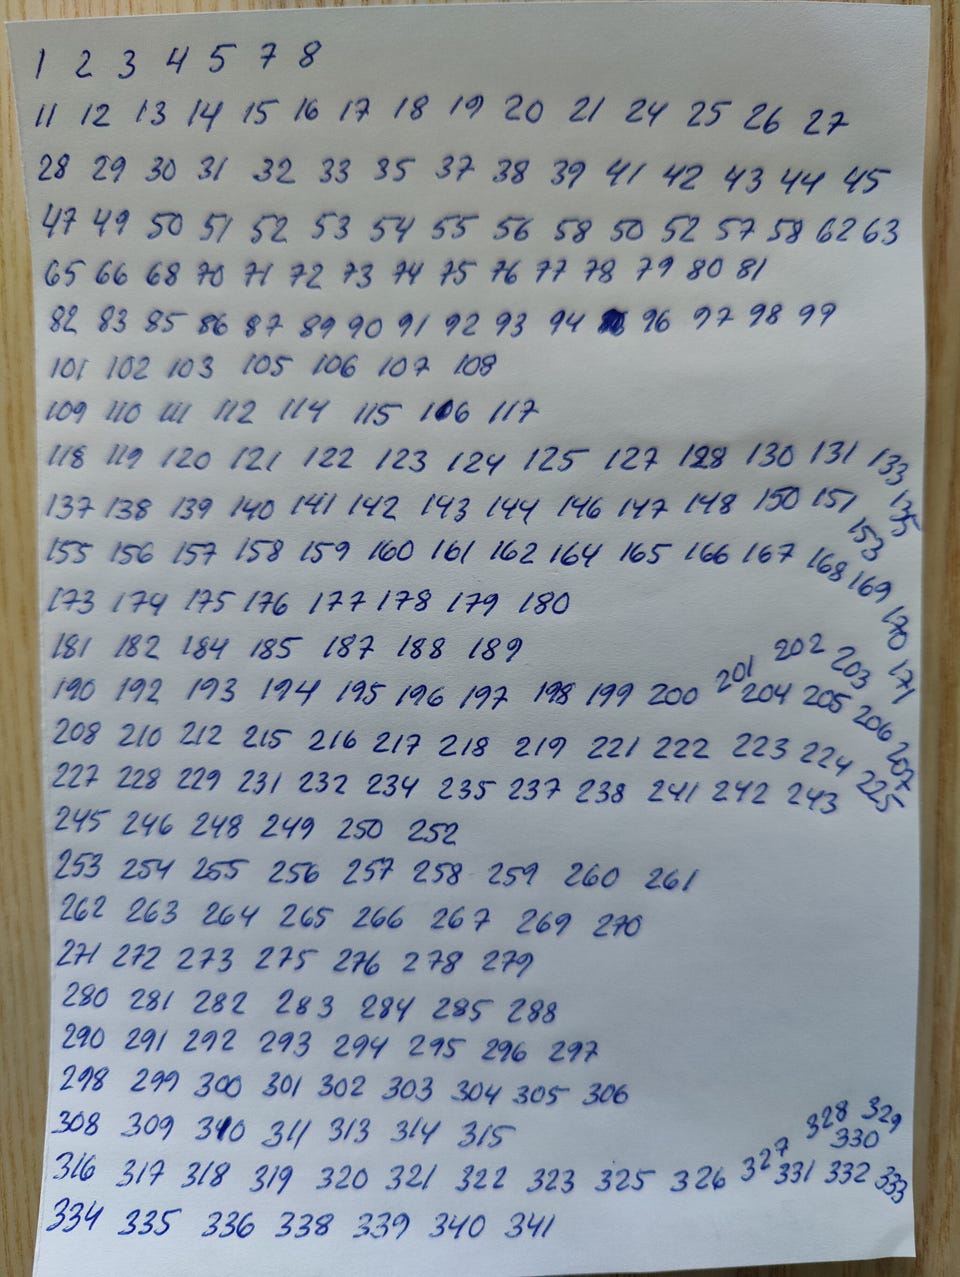 1 2 3 4 5 7 8
11 12 13 14 15 16 17 18 19 20 21 24 25 26 27
28 29 30 31 32 33 35 37 38 39 41 42 43 44 45
47 49 50 51 52 53 54 55 56 58 50 52 57 58 62 63
65 66 68 70 71 72 73 74 75 76 77 78 79 80 81
82 83 85 86 87 89 90 91 92 93 94 96 97 98 99
101 102 103 105 106 107 108
109 110 111 112 114 115 106 117
118 119 120 121 122 123 124 125 127 128 130 131 133
135
137 138 139 140 141 142 143 144 146 147 148 150 151
153
155 156 157 158 159 160 161 162 164 165 166 167 168 169
171
173 174 175 176 177 178 179 180
181 182 184 185 187 188 189
190 192 193 194 195 196 197 198 199 200 201 202 203
204 205 206 207
208 210 212 215 216 217 218 219 221 222 223 224 225
227 228 229 231 232 234 235 237 238 241 242 243
245 246 248 249 250 252
253 254 255 256 257 258 259 260 261
262 263 264 265 266 267 269 270
271 272 273 275 276 278 279
280 281 282 283 284 285 288
290 291 292 293 294 295 296 297
298 299 300 301 302 303 304 305 306
308 309 310 311 313 314 315
316 317 318 319 320 321 322 323 325 326 327 328 329
330
331 332 333
334 335 336 338 339 340 341